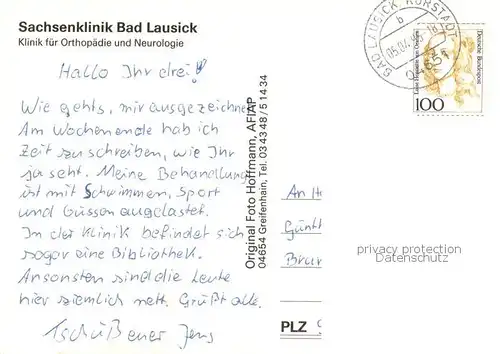 Sachsenklinik Bad Lausick
Klinik für Orthopädie und Neurologie
Hallo Ihr drei!
Wie gehts, mir ausgezeichnet.
Am Wochenende hab ich
Zeit zu schreiben, wie Ihr
ja seht. Meine Behandlung
ist mit Schwimmen, Sport
und Güssen ausgelastet.
In der Klinik befindet sich
sogar eine Bibliothek.
Ansonsten sind die Leute
hier ziemlich nett. Grüßt alle.
Tschüß euer Jens
Original Foto Hoffmann, AF/AP
04654 Greifenhain, Tel. 03 43 48 / 5 14 34
BAD LAUSICK, KURSTADT
b
04651
Deutsche Bundespost
100
An
PLZ
privacy protection
Datenschutz